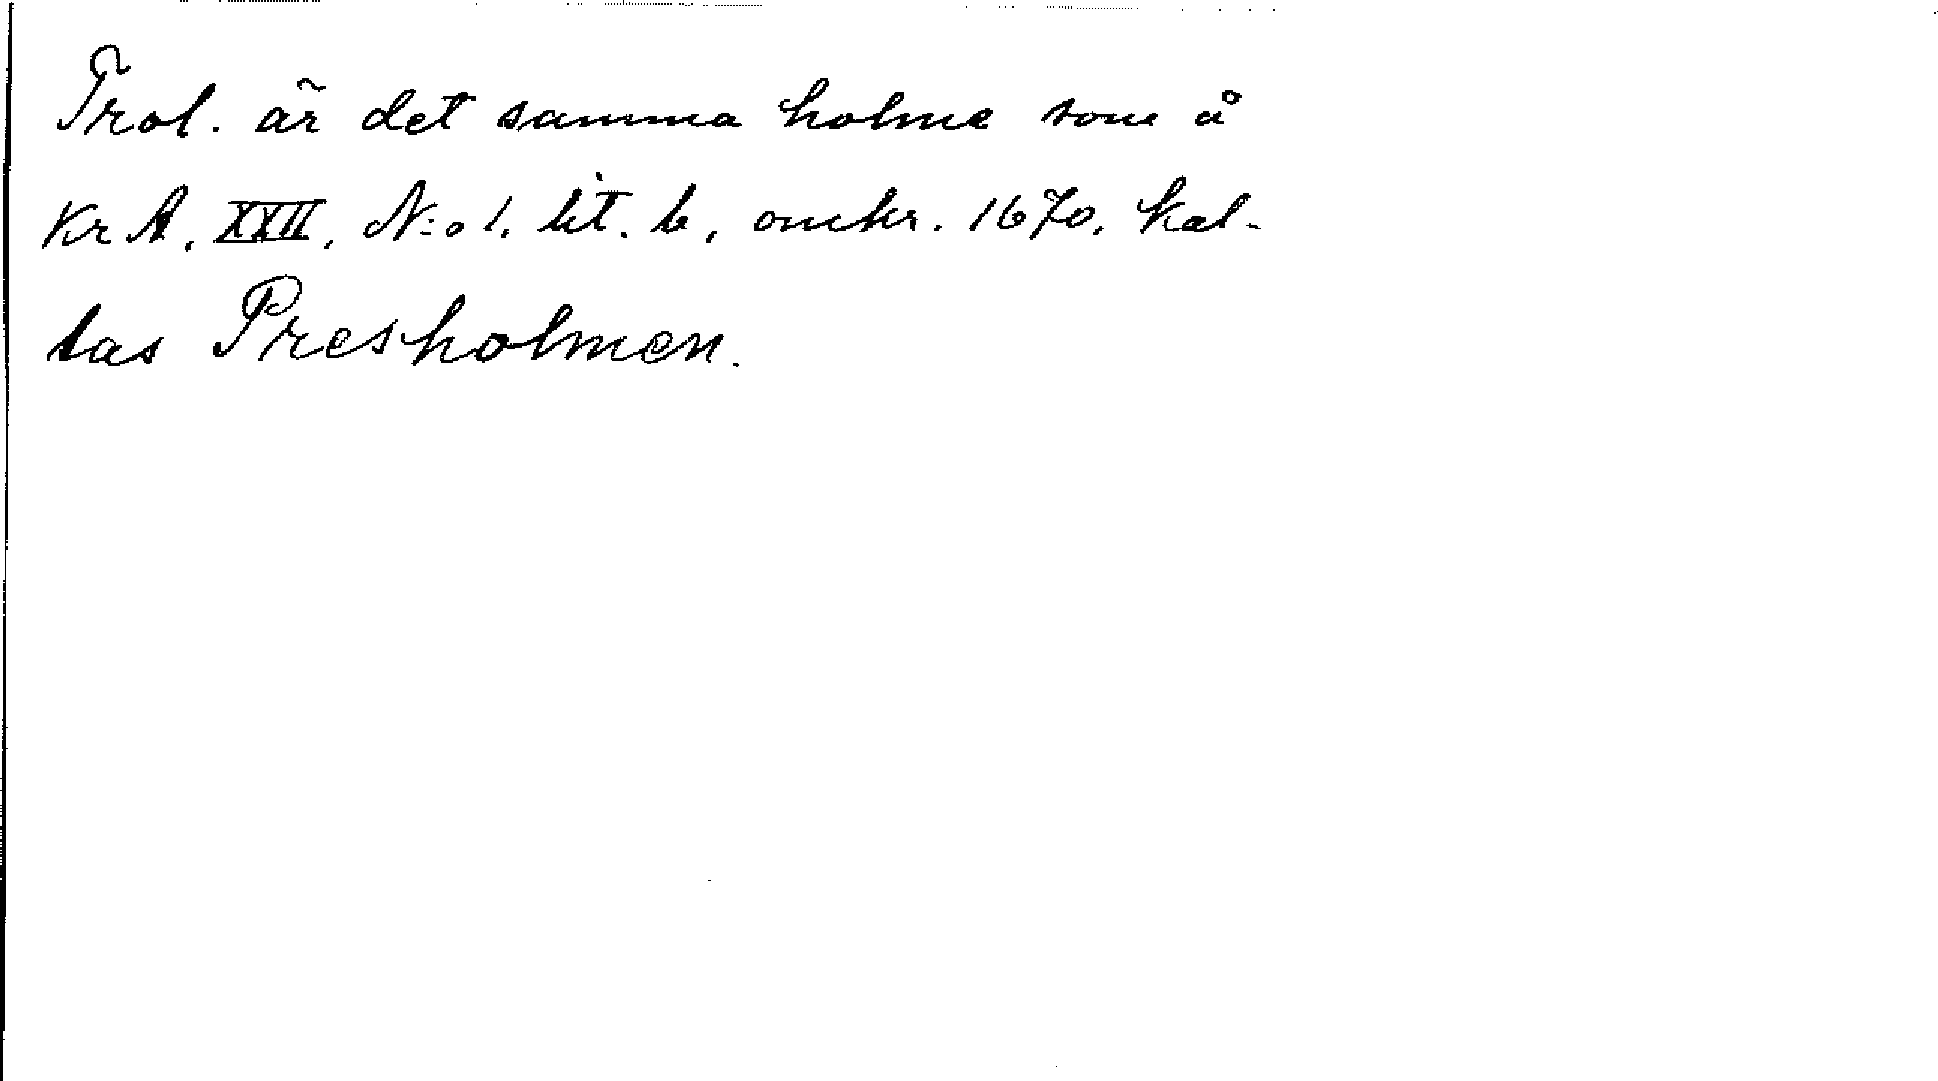 Trol. är det samma holme som å
KrA. XXII. N:o 1. lit. b, omkr. 1670, kal-
las Presholmen.